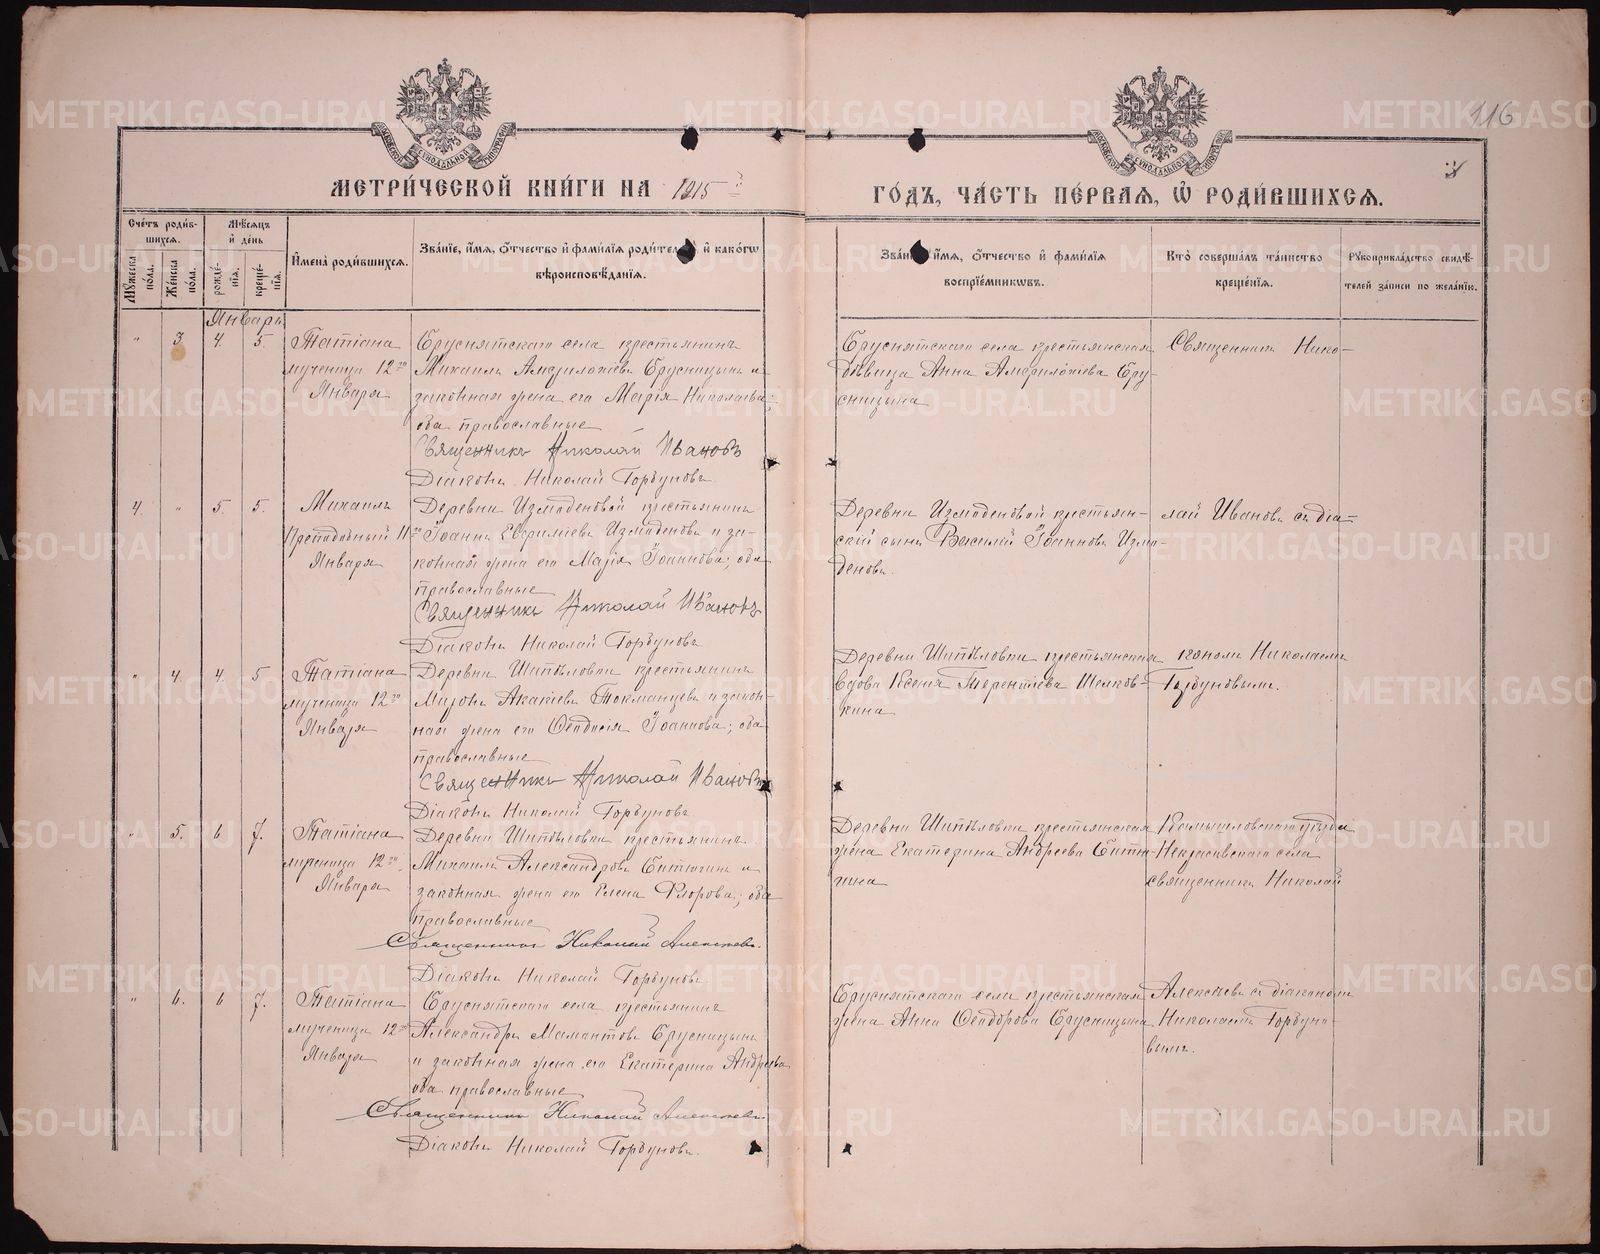 116
3
МЕТРИ́ЧЕСКОЙ КНИ́ГИ НА 1915 й
ГО́ДЪ, ЧА́СТЬ ПЕ́РВАѦ, Ѽ РОДИ́ВШИХСѦ.
Сче́тъ роди́в-
шихсѧ.
Му́жеска по́ла.
Же́нска по́ла.
Мѣ́сѧцъ
и҆ де́нь
рожде́-
нїѧ.
креще́-
нїѧ.
И҆мена̀ роди́вшихсѧ.
Зва́нїе, и҆́мѧ, ѻ҆́тчество и҆ фами́лїѧ роди́телей, и҆ како́гѡ
вѣроисповѣ́данїѧ.
Зва́нїе, и҆́мѧ, ѻ҆́тчество и҆ фами́лїѧ
воспрїе́мникѡвъ.
Кто̀ соверша́лъ та́инство
креще́нїѧ.
Рукоприкла́дство свидѣ́-
телей за́писи по жела́нїю.
Январь
" 3 4. 5.
Татіана
мученица 12го
Января
Бруснятскаго села крестьянинъ
Михаилъ Амфилохіевъ Брусницынъ и
законная жена его Марія Николаева;
оба православные
Священникъ Николай Ивановъ
Діаконъ Николай Горбуновъ
Бруснятскаго села крестьянская
дѣвица Анна Амфилохіева Бру-
сницына
Священникъ Нико-
4. " 5. 5.
Михаилъ
Преподобный 11го
Января
Деревни Измоденовой крестьянинъ
Іоаннъ Евфиміевъ Измоденовъ и за-
конная жена его Марія Іоаннова; оба
православные
Священникъ Николай Ивановъ
Діаконъ Николай Горбуновъ
Деревни Измоденовой крестьян-
скій сынъ Василій Іоанновъ Измо-
деновъ.
лай Ивановъ съ діа-
" 4. 4. 5
Татіана
мученица 12го
Января
Деревни Шипѣловки крестьянинъ
Миронъ Акакіевъ Токманцевъ и закон-
ная жена его Ѳеодосія Іоаннова; оба
православные
Священникъ Николай Ивановъ
Діаконъ Николай Горбуновъ
Деревни Шипѣловки крестьянская
вдова Ксенія Терентіева Шелков-
кина
кономъ Николаемъ
Горбуновымъ.
" 5. 6 7.
Татіана
мученица 12го
Января
Деревни Шипѣловки крестьянинъ
Михаилъ Александровъ Ситюгинъ и
законная жена его Елена Флорова; оба
православные
Священникъ Николай Алексѣевъ.
Діаконъ Николай Горбуновъ
Деревни Шипѣловки крестьянская
жена Екатерина Андреева
Камышловскаго уѣзда
Некрасовскаго села
священникъ Николай
" 6. 6 7.
Татіана
мученица 12го
Января
Бруснятскаго села крестьянинъ
Александръ Мамантовъ Брусницынъ
и законная жена его Екатерина Андреева
оба православные
Священникъ Николай Алексѣевъ
Діаконъ Николай Горбуновъ.
Бруснятскаго села крестьянская
жена Анна Ѳеодорова Брусницына
Алексѣевъ съ діакономъ
Николаемъ Горбуно-
вымъ.
METRIKI.GASO-URAL.RU